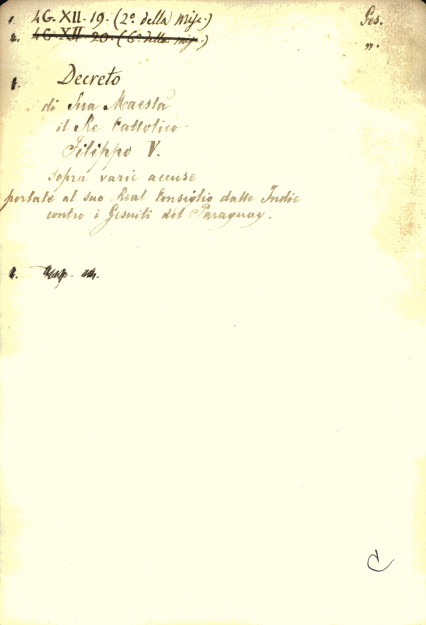 1. 4G.XII.19.(2ª della Misc.) Ges.
2. 4G.XII.20.(6ª della Misc.) „.
1. Decreto
di Sua Maestà
il Re Cattolico
Filippo V.
sopra varie accuse
portate al suo Real Consiglio dalle Indie
contro i Gesuiti del Paraguay.
2.